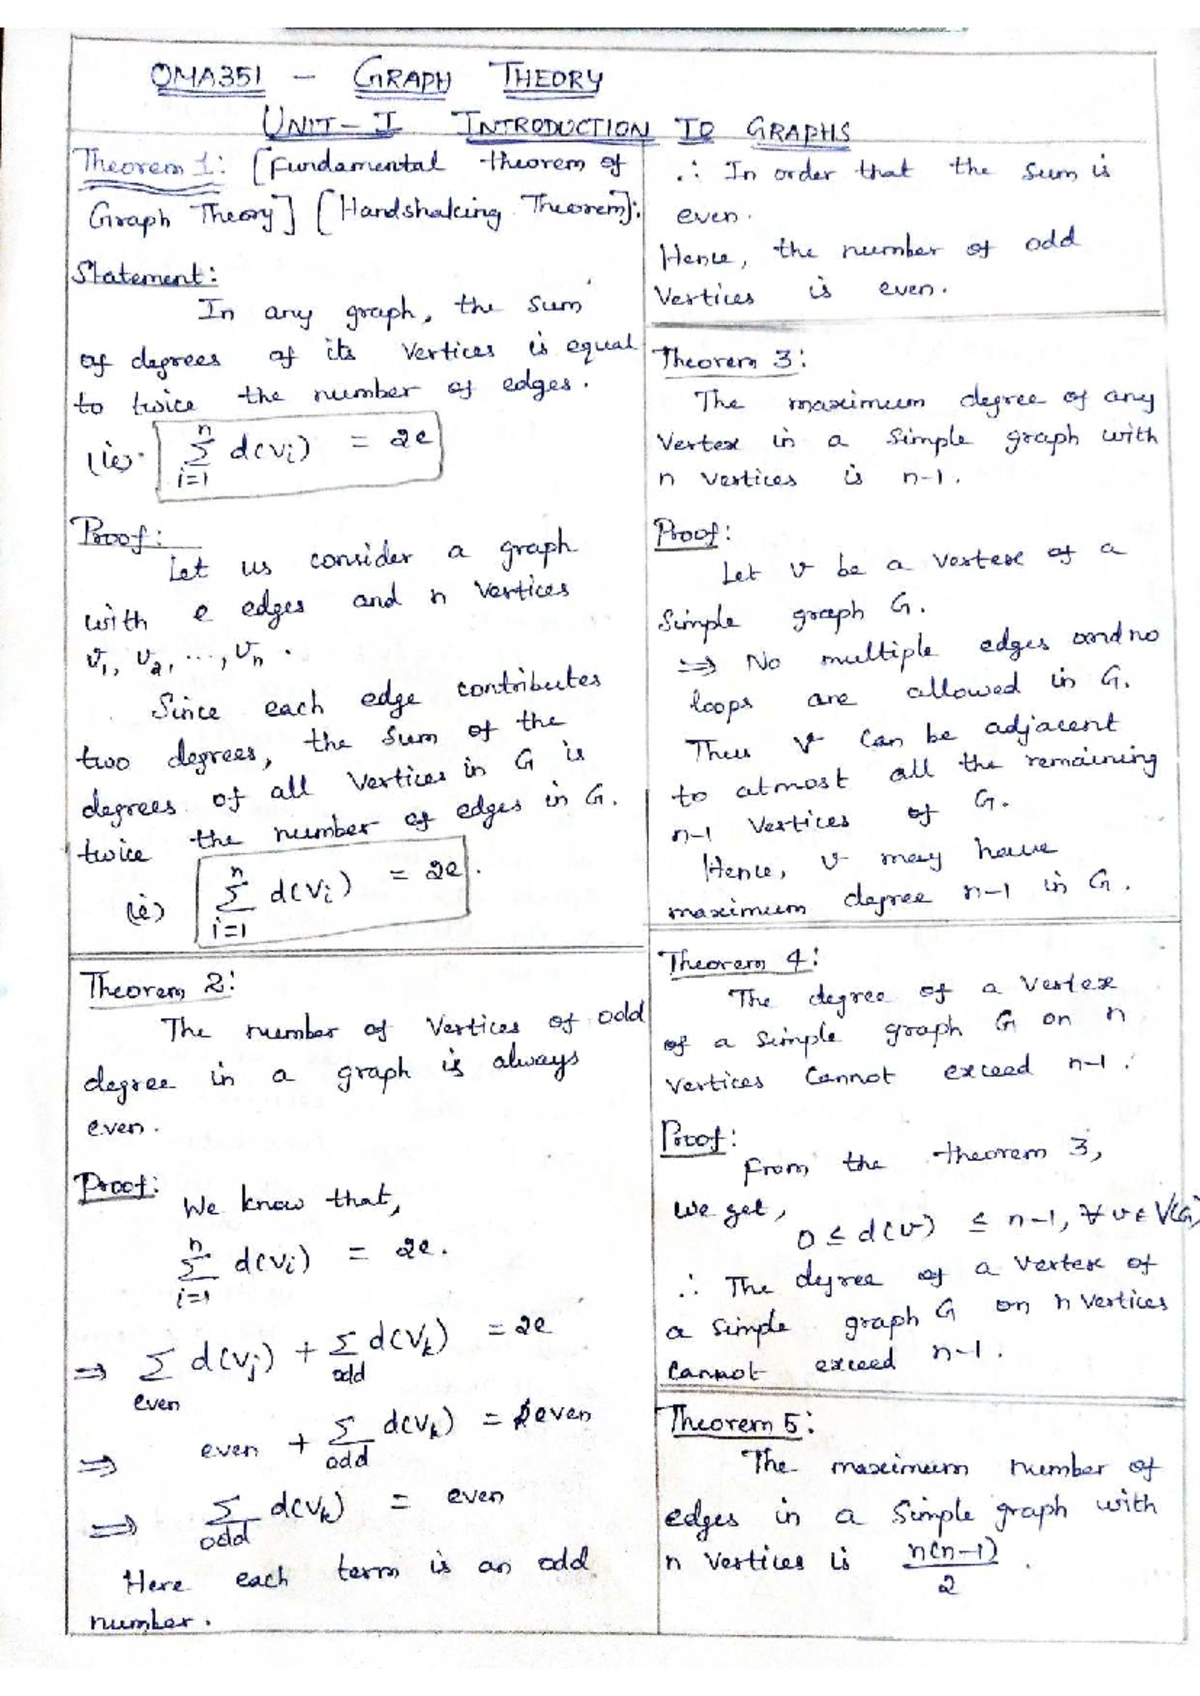 OMA351 - GRAPH THEORY
UNIT-I INTRODUCTION TO GRAPHS
Theorem 1: [Fundamental theorem of
Graph Theory] [Handshaking Theorem]:
Statement:
In any graph, the sum
of degrees of its vertices is equal
to twice the number of edges.
(ie). ∑_{i=1}^{n} d(vi) = 2e
Proof:
Let us consider a graph
with e edges and n vertices
v1, v2, ..., vn.
Since each edge contributes
two degrees, the sum of the
degrees of all vertices in G is
twice the number of edges in G.
(ie) ∑_{i=1}^{n} d(vi) = 2e.
Theorem 2:
The number of vertices of odd
degree in a graph is always
even.
Proof:
We know that,
∑_{i=1}^{n} d(vi) = 2e.
⇒ ∑_{even} d(vj) + ∑_{odd} d(vk) = 2e
⇒ even + ∑_{odd} d(vk) = even
⇒ ∑_{odd} d(vk) = even
Here each term is an odd
number.
∴ In order that the sum is
even.
Hence, the number of odd
vertices is even.
Theorem 3:
The maximum degree of any
vertex in a simple graph with
n vertices is n-1.
Proof:
Let v be a vertex of a
simple graph G.
⇒ No multiple edges and no
loops are allowed in G.
Thus v can be adjacent
to atmost all the remaining
n-1 vertices of G.
Hence, v may have
maximum degree n-1 in G.
Theorem 4:
The degree of a vertex
of a simple graph G on n
vertices cannot exceed n-1.
Proof:
From the theorem 3,
we get,
0 ≤ d(v) ≤ n-1, ∀ v ∈ V(G)
∴ The degree of a vertex of
a simple graph G on n vertices
cannot exceed n-1.
Theorem 5:
The maximum number of
edges in a simple graph with
n vertices is n(n-1)/2.